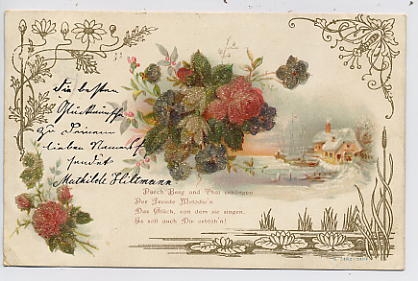 Die besten
Glückwünsche
zu Deinem
lieben Namensf
sendet
Mathilde Hillmann
Durch Berg und Thal erklingen
Der Freude Melodie'n
Das Glück, von dem sie singen,
Es soll auch Dir erblüh'n!